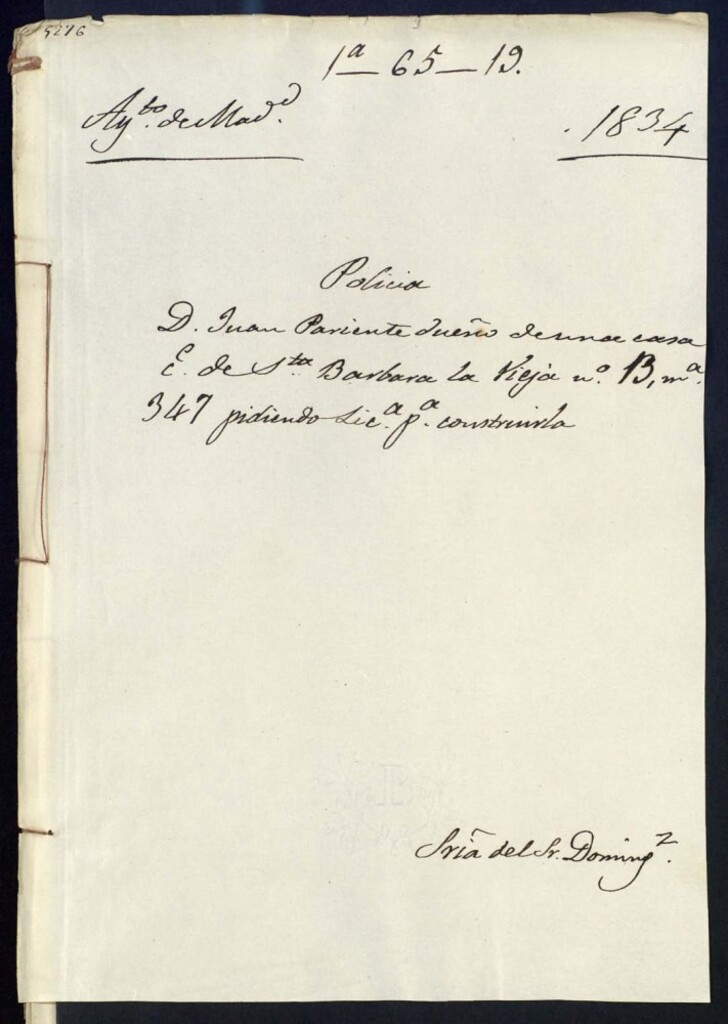 5276
1ª — 65 — 19.
Ayto. de Madd.
1834
Policia
D. Juan Pariente dueño de una casa
C. de Sta Barbara la Vieja nº. 13, mª.
347 pidiendo Lica. pª. construirla
Sría del Sr. Domingz.